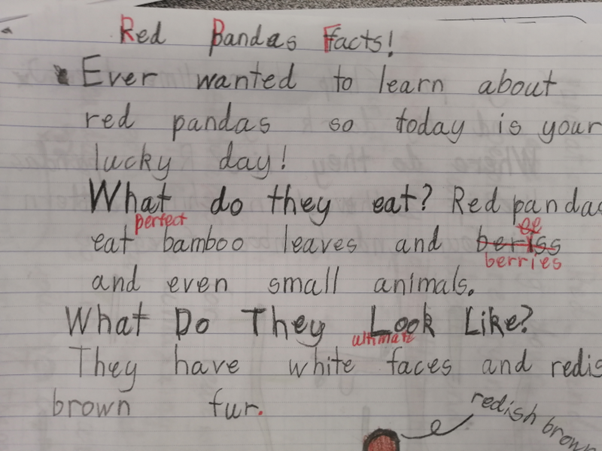 Red Pandas Facts!
Ever wanted to learn about
red pandas so today is your
lucky day!
What do they eat? Red panda
perfect
ee
eat bamboo leaves and beriss
berries
and even small animals.
What Do They Look Like?
ultimate
They have white faces and redis
brown fur.
redish brown